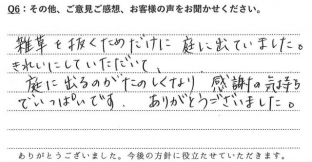 Q6：その他、ご意見ご感想、お客様の声をお聞かせください。
雑草を抜くためだけに庭に出ていました。
きれいにしていただいて、
庭に出るのがたのしくなり、感謝の気持ち
でいっぱいです。ありがとうございました。
ありがとうございました。今後の方針に役立たせていただきます。